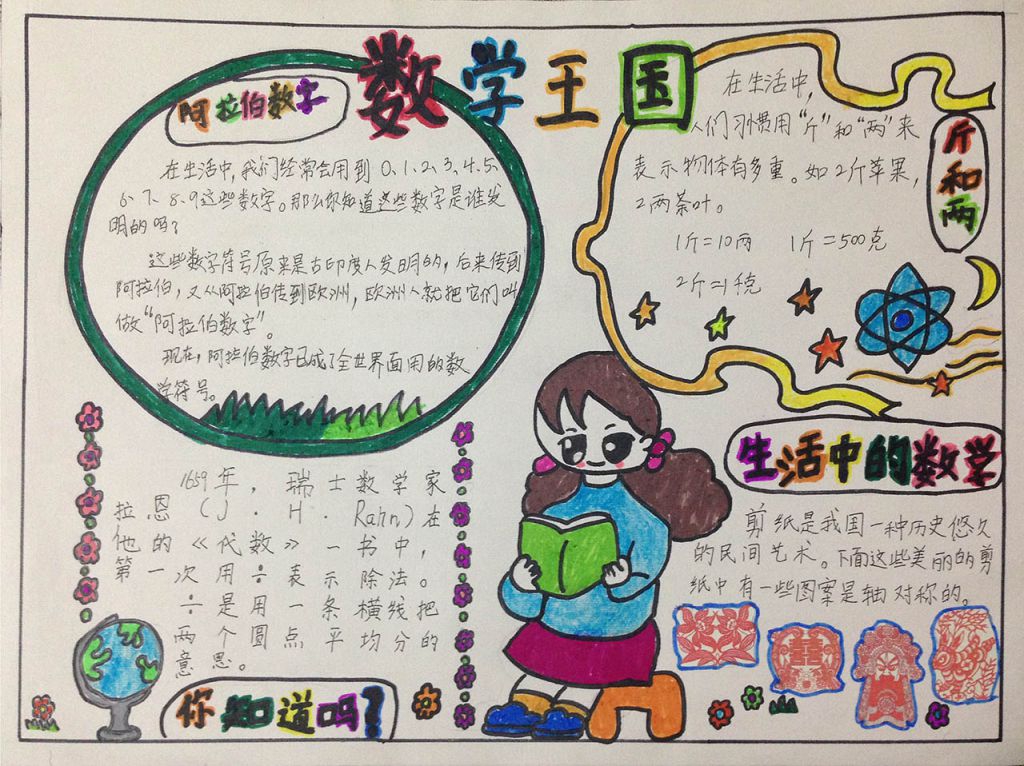 数学王国
阿拉伯数字
在生活中,我们经常会用到 0、1、2、3、4、5、
6、7、8、9这些数字。那么你知道这些数字是谁发
明的吗?
这些数字符号原来是古印度人发明的,后来传到
阿拉伯,又从阿拉伯传到欧洲,欧洲人就把它们叫
做“阿拉伯数字”。
现在,阿拉伯数字已成了全世界面用的数
学符号。
斤和两
在生活中,
人们习惯用“斤”和“两”来
表示物体有多重。如2斤苹果,
2两茶叶。
1斤=10两 1斤=500克
2斤=1千克
1659年,瑞士数学家
拉恩(J.H.Rahn)在
他的《代数》一书中,
第一次用÷表示除法。
÷是用一条横线把
两个圆点平均分的
意思。
你知道吗?
生活中的数学
剪纸是我国一种历史悠久
的民间艺术。下面这些美丽的剪
纸中有一些图案是轴对称的。